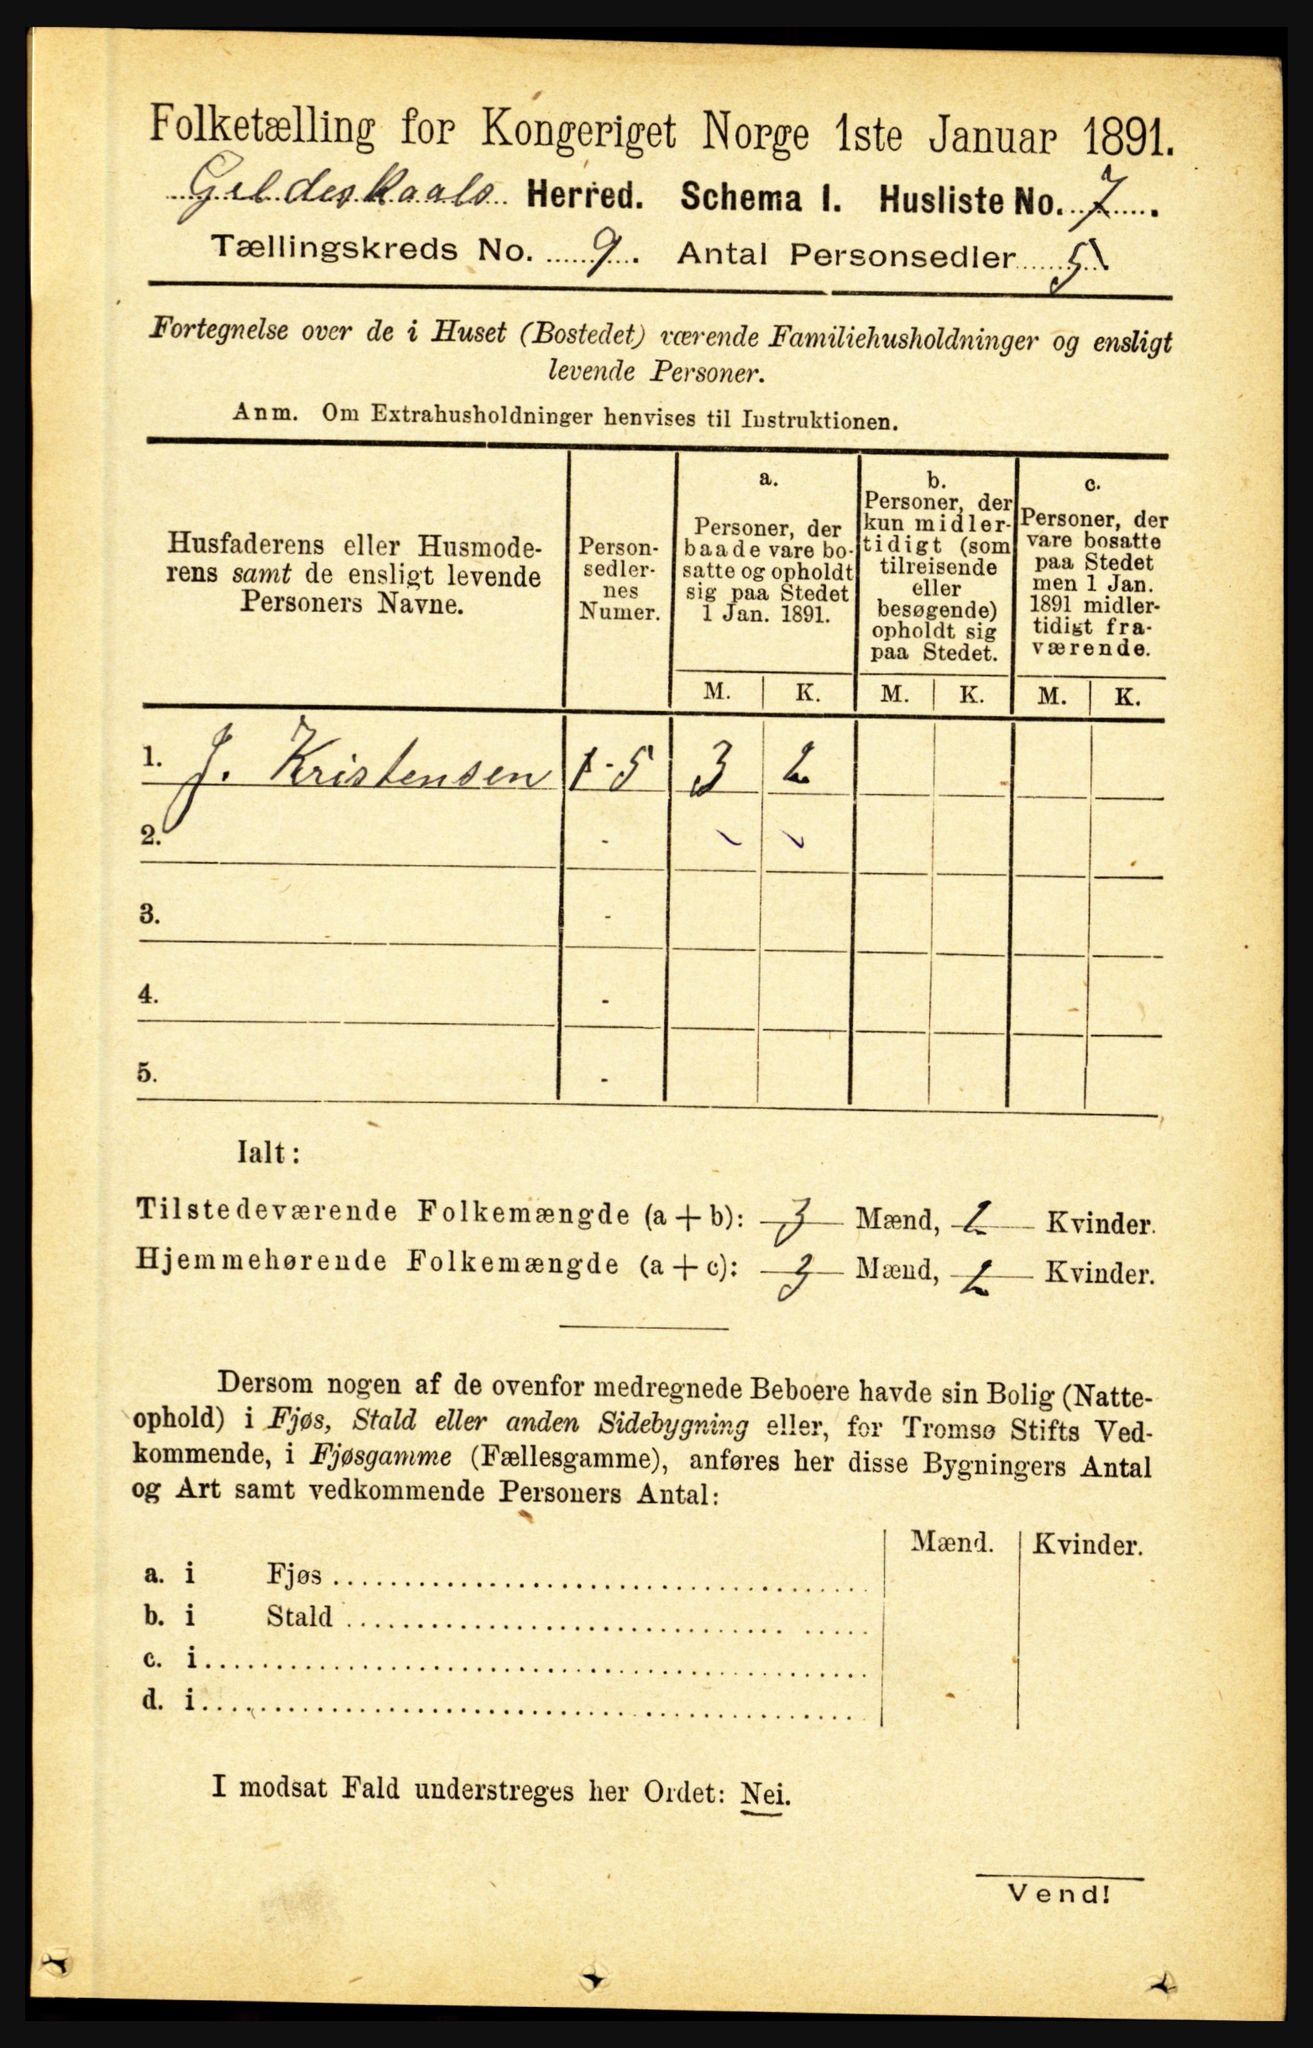 Folketælling for Kongeriget Norge 1ste Januar 1891.
Gildeskaals Herred. Schema I. Husliste No. 7.
Tællingskreds No. 9. Antal Personsedler 5
Fortegnelse over de i Huset (Bostedet) værende Familiehusholdninger og ensligt
levende Personer.
Anm. Om Extrahusholdninger henvises til Instruktionen.
Husfaderens eller Husmode-
rens samt de ensligt levende
Personers Navne.
Person-
sedler-
nes
Numer.
a.
Personer, der
baade vare bo-
satte og opholdt
sig paa Stedet
1 Jan. 1891.
b.
Personer, der
kun midler-
tidigt (som
tilreisende
eller
besøgende)
opholdt sig
paa Stedet.
c.
Personer, der
vare bosatte
paa Stedet
men 1 Jan.
1891 midler-
tidigt fra-
værende.
M. K. M. K. M. K.
1. J. Kristensen 1-5 3 2
2. -
3. -
4. -
5. -
Ialt:
Tilstedeværende Folkemængde (a+b): 3 Mænd, 2 Kvinder.
Hjemmehørende Folkemængde (a+c): 3 Mænd, 2 Kvinder.
Dersom nogen af de ovenfor medregnede Beboere havde sin Bolig (Natte-
ophold) i Fjøs, Stald eller anden Sidebygning eller, for Tromsø Stifts Ved-
kommende, i Fjøsgamme (Fællesgamme), anføres her disse Bygningers Antal
og Art samt vedkommende Personers Antal:
Mænd. Kvinder.
a. i Fjøs
b. i Stald
c. i
d. i
I modsat Fald understreges her Ordet: Nei.
Vend!